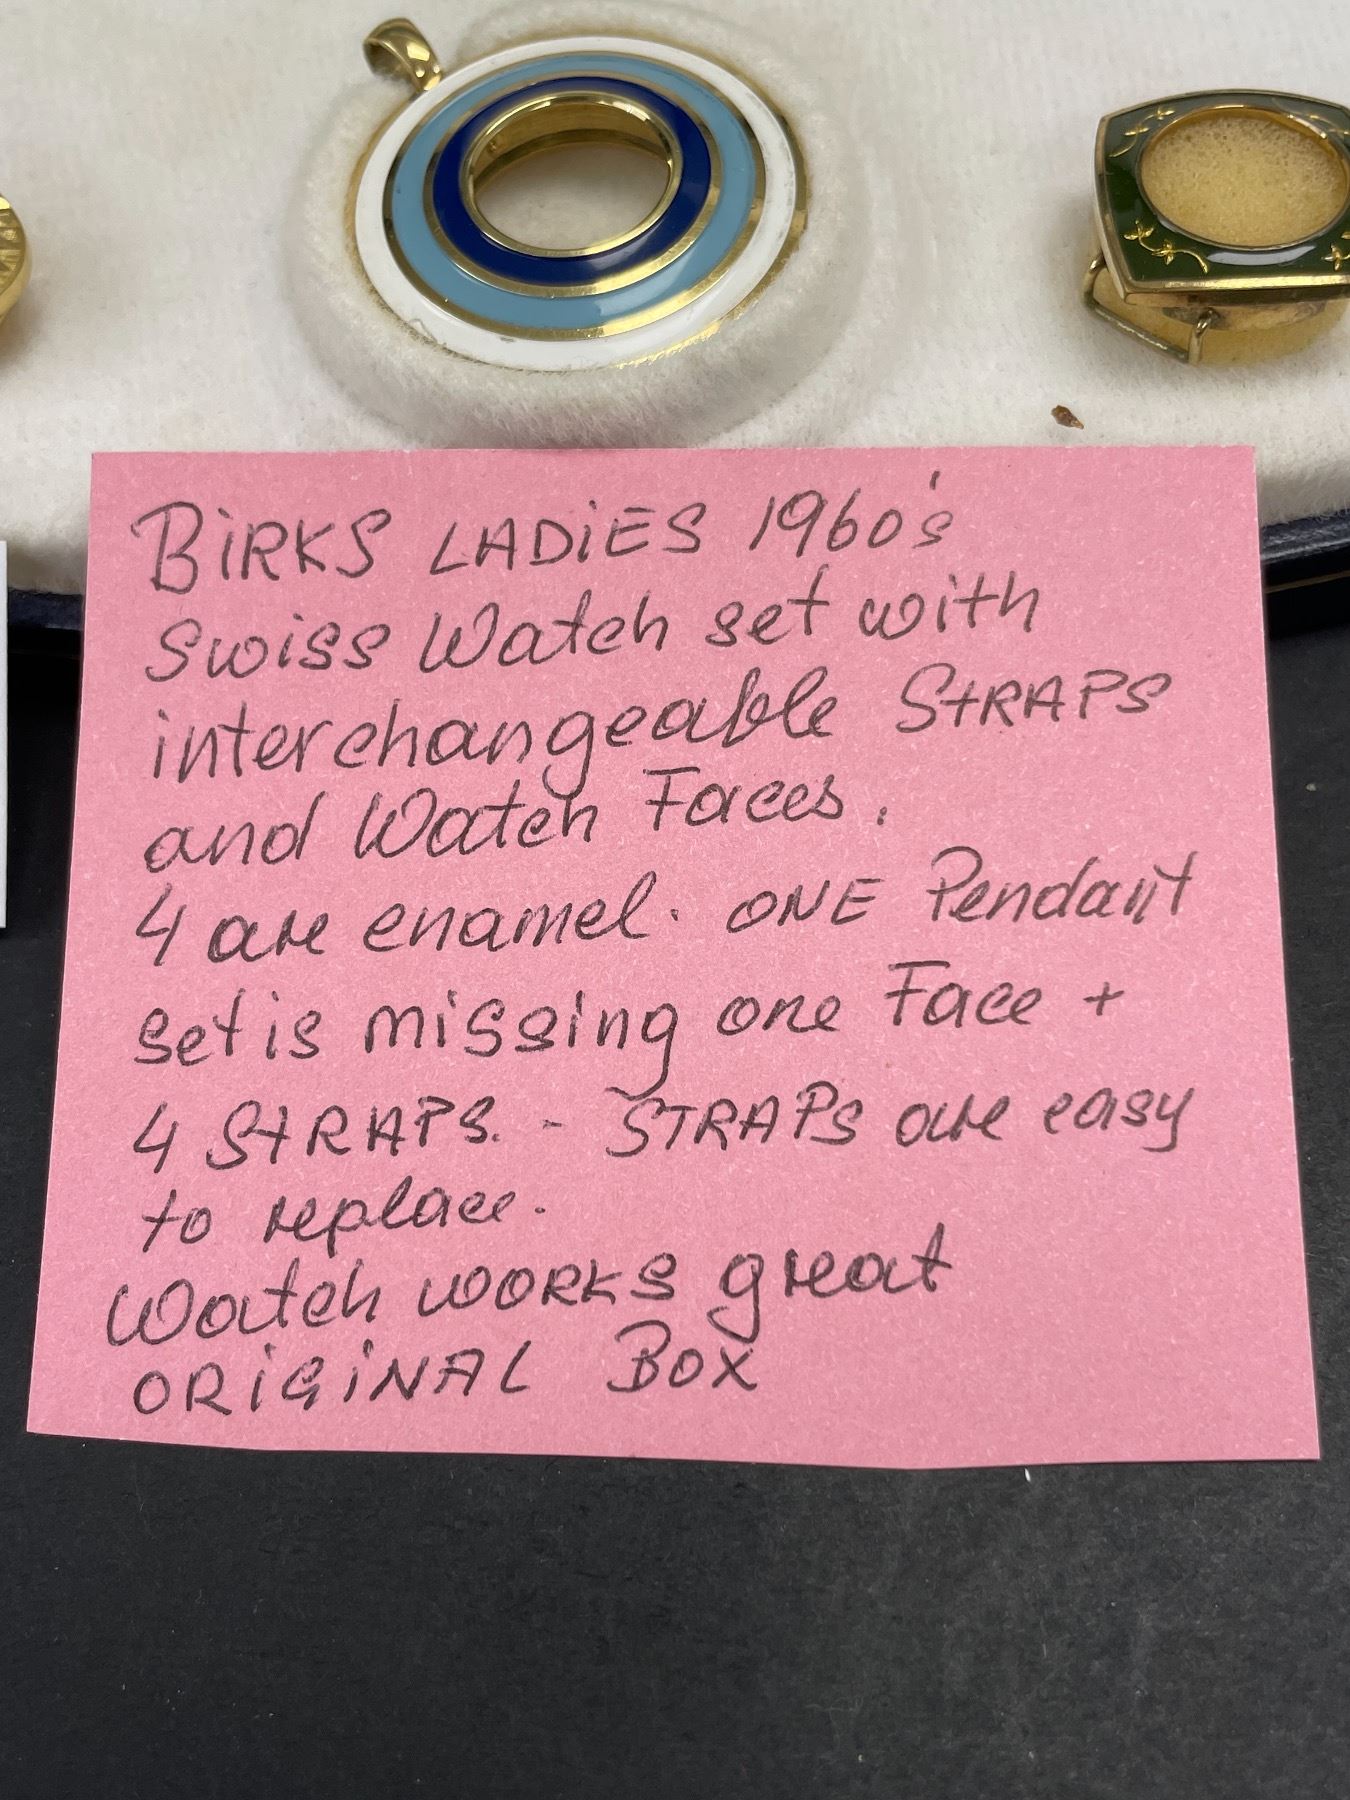 BIRKS LADIES 1960's
Swiss Watch set with
interchangeable STRAPS
and Watch Faces.
4 are enamel. ONE Pendant
set is missing one Face +
4 STRAPS. - STRAPS are easy
to replace.
Watch works great
ORIGINAL Box